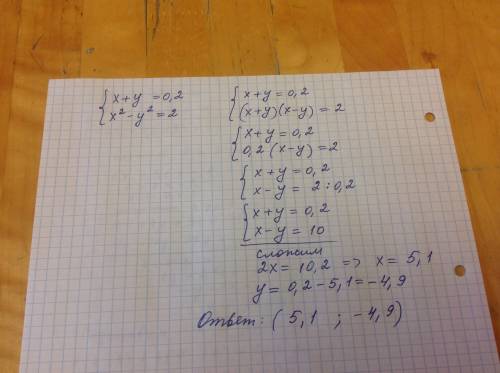 x+y = 0,2
x² - y² = 2
x+y = 0,2
(x+y)(x-y) = 2
x+y = 0,2
0,2 (x-y) = 2
x+y = 0,2
x-y = 2 : 0,2
x+y = 0,2
x-y = 10
сложим
2x = 10,2 => x = 5,1
y = 0,2 - 5,1 = -4,9
Ответ: ( 5,1 ; -4,9)